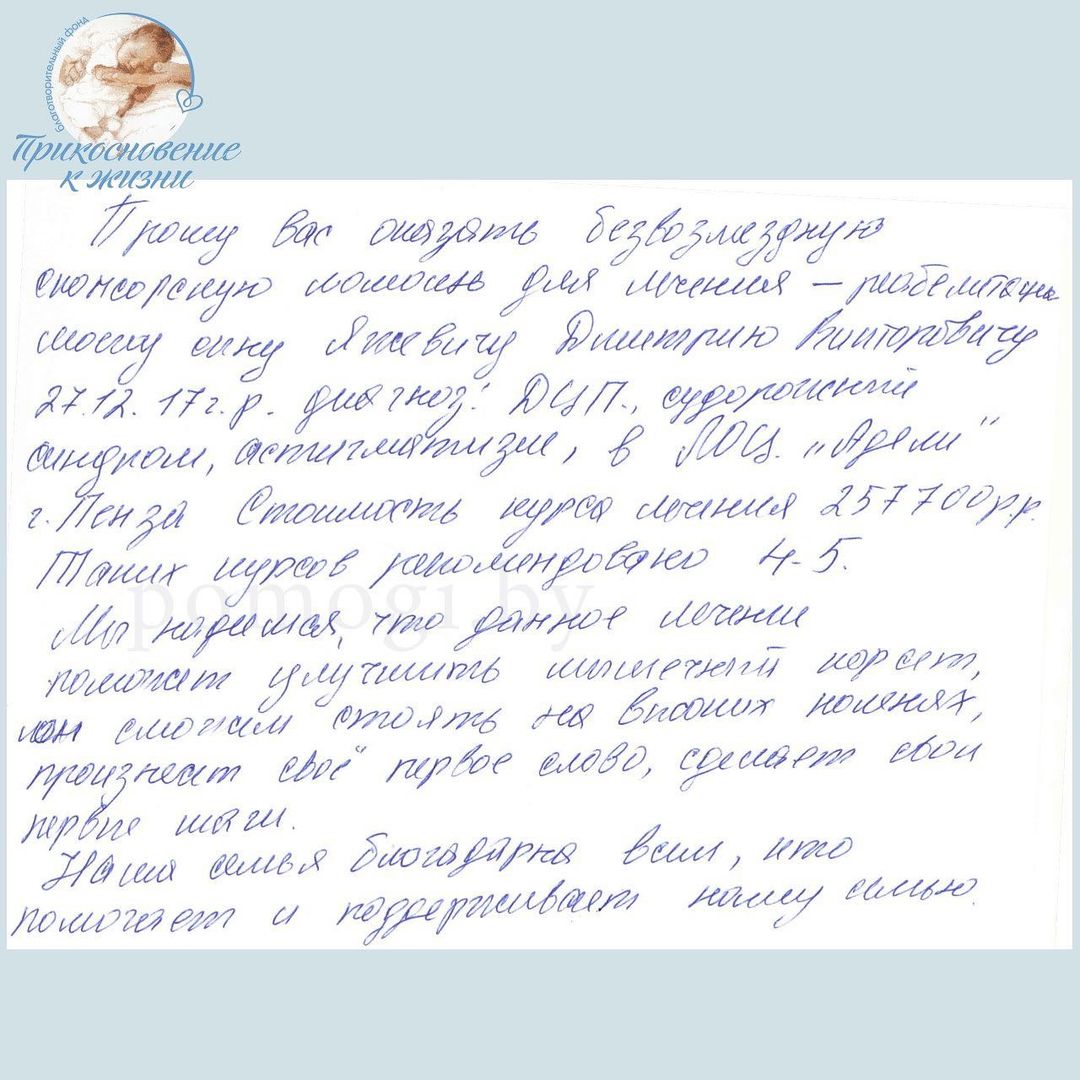 благотворительный фонд
Прикосновение
к жизни
Прошу вас оказать безвозмездную
спонсорскую помощь для лечения –
моему сину Яжевичу Дмитрию Викторовичу
27.12.17г.р. диагноз: ДЦП., судорожный
синдром, астигматизм, в ЛОЦ. „Адели"
г. Пенза Стоимость курса лечения 257700р.р.
Таких курсов рекомендовано 4-5.
pomogi.by
Мы надеимся, что данное лечение
поможет улучшить мышечный корсет,
он сможит стоять на высоких коленях,
произнесет своё первое слово, сделает свои
первые шаги.
Наша семья благодарна всем, кто
помогает и поддерживает нашу семью.